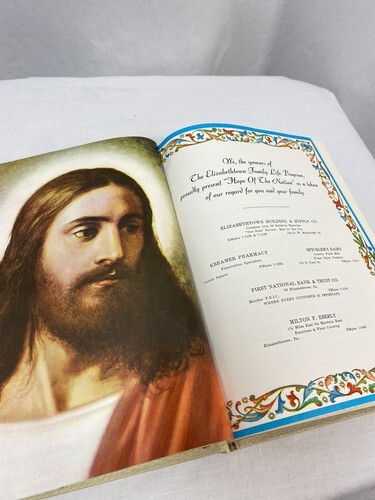 We, the sponsors of
The Elizabethtown Family Life Program,
proudly present "Hope Of The Nation" as a token
of our regard for you and your family.
ELIZABETHTOWN BUILDING & SUPPLY CO.
Complete Line Of Building Materials
"One Stop" Service
KREAMER PHARMACY
Prescription Specialists
Centre Square
SPICKLER'S DAIRY
FIRST NATIONAL BANK & TRUST CO.
Of Elizabethtown, Pa.
Member F.D.I.C.
WHERE EVERY CUSTOMER IS IMPORTANT
MILTON F. EBERLY
Furniture & Floor Covering
Elizabethtown, Pa.